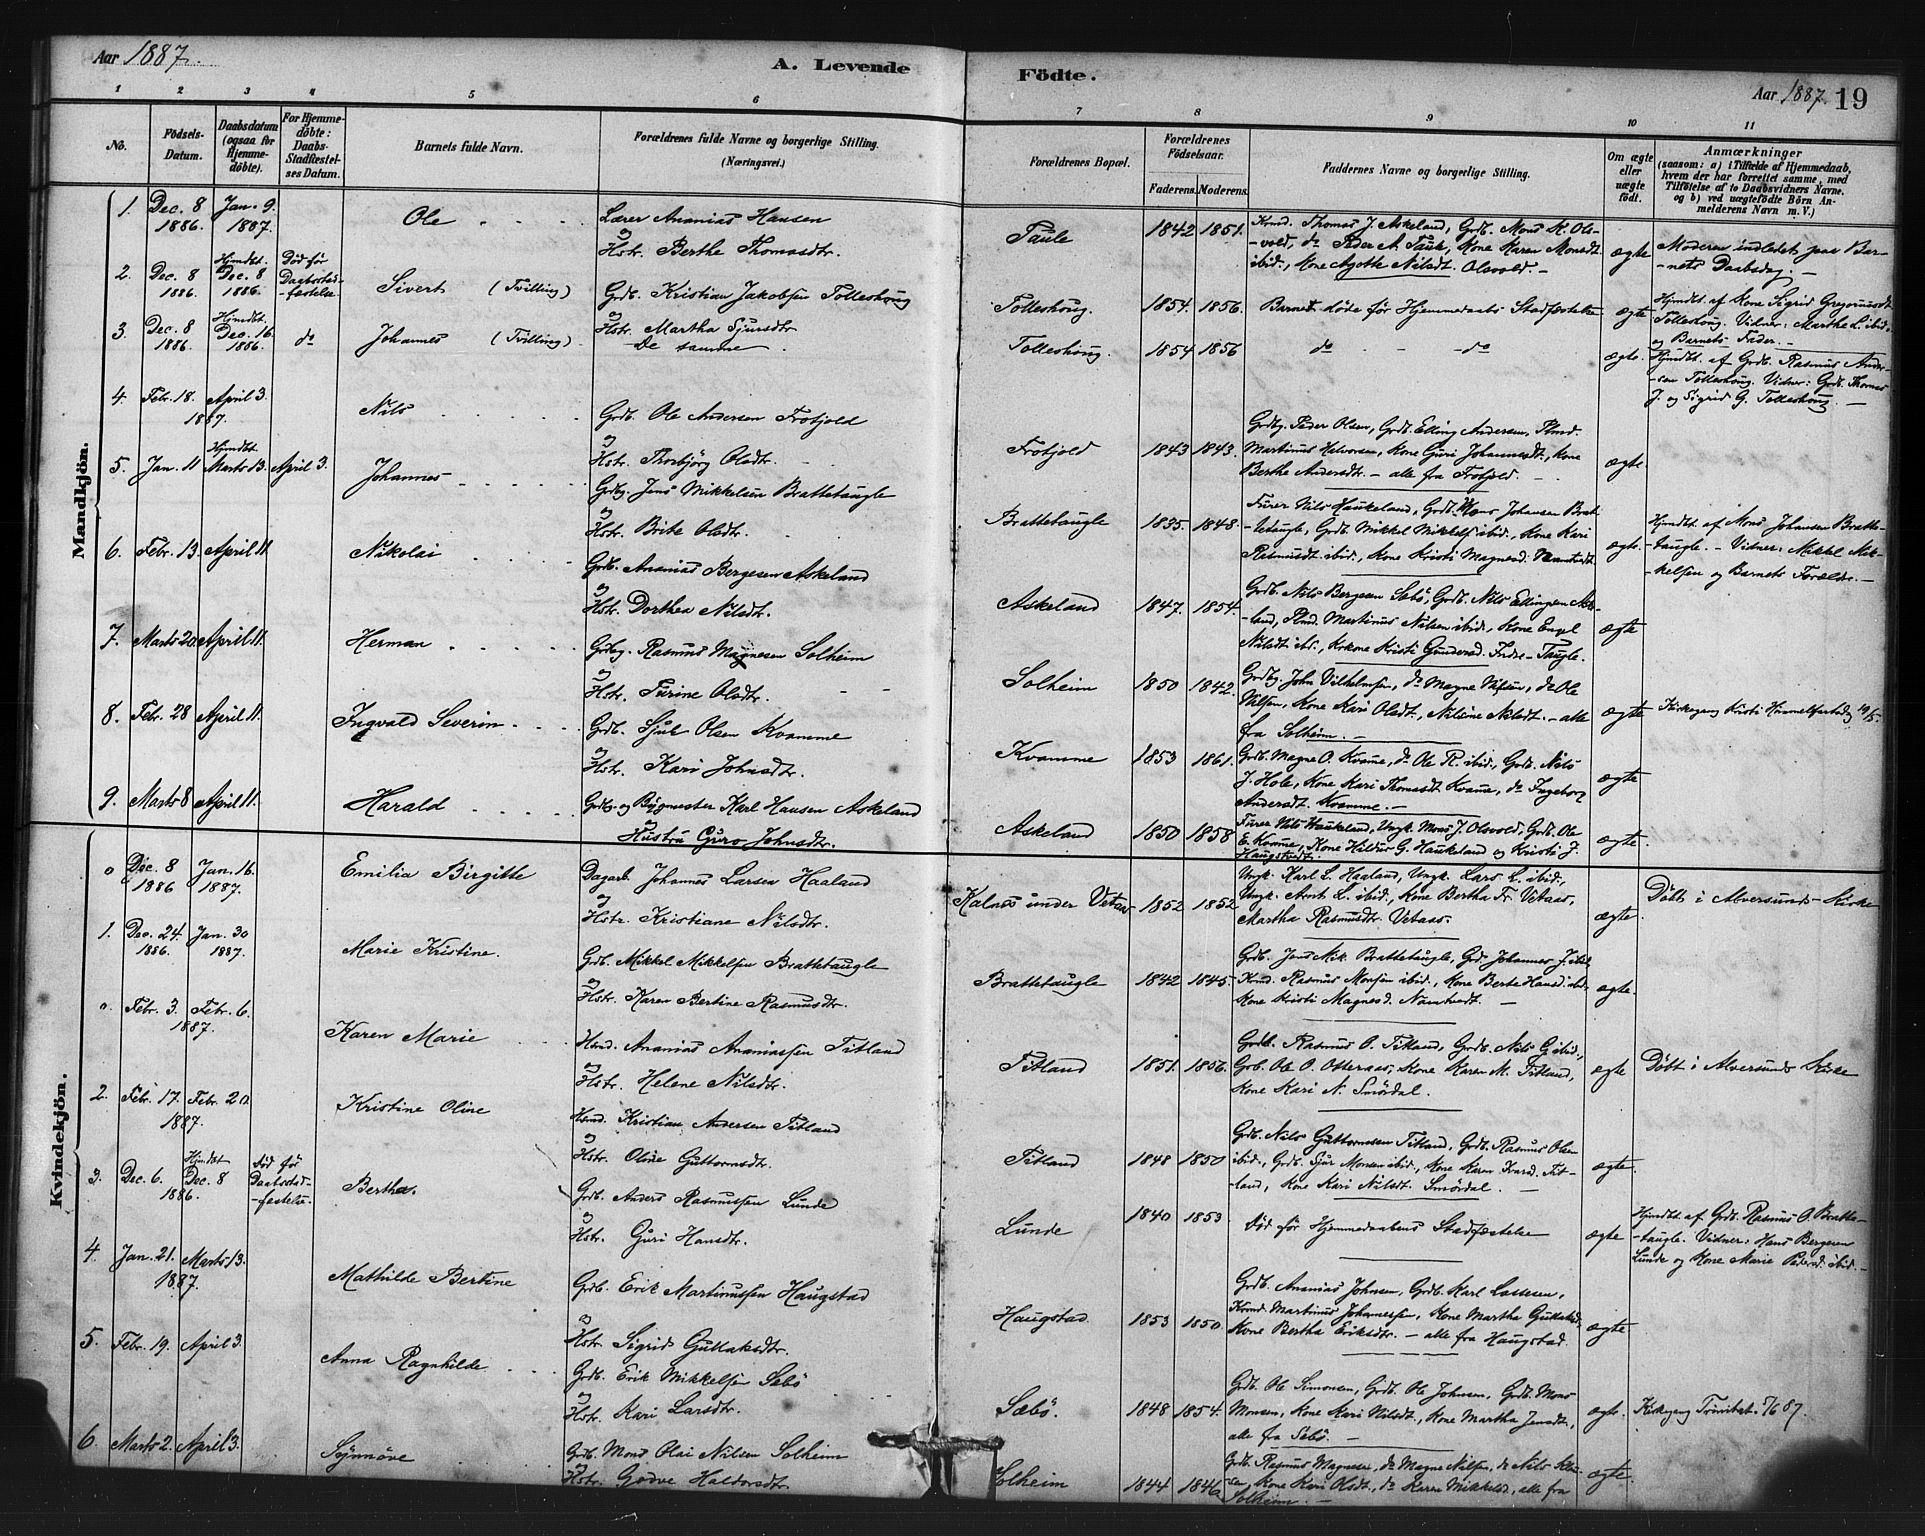 Aar 1887.
A. Levende
Födte.
Aar 1887. 19
1 2 3 4 5 6 7 8 9 10 11
No.
Födsels-Datum.
Daabsdatum (ogsaa for Hjemmedöbte).
For Hjemmedöbte: Daabs-Stadfæstelses Datum.
Barnets fulde Navn.
Forældrenes fulde Navne og borgerlige Stilling. (Næringsvei.)
Forældrenes Bopæl.
Forældrenes Födselsaar.
Faderens. Moderens.
Faddernes Navne og borgerlige Stilling.
Om ægte eller uægte födt.
Anmærkninger (saasom: a) i Tilfælde af Hjemmedaab, hvem der har forrettet samme, med Tilföielse af to Daabsvidners Navne, og b) ved uægtefödte Börn Anmelderens Navn m. V.)
Mandkjön.
1. Dec. 8 1886. Jan. 9. 1887. Ole
Lærer Ananias Hansen
Hstr. Berthe Thomasdtr.
Taule 1842 1851.
Kmd. Thomas J. Askeland, Grdb. Mons K. Ols-
-vold, do Peder A. Taule, Kone Karen Monsdt.
ibid., Kone Agotte Nilsdt. Olsvold. -
ægte
Moderen indledet paa Bar-
-nets Daabsdag. -
2. Dec. 8 1886. Hjmdbt. Dec. 8 1886. Død før Daabsstad-fæstelse. Sivert (Tvilling)
Grdb. Kristian Jakobsen Tolleshoug
Hstr. Martha Sjursdtr
Tolleshoug. 1854. 1856. Barnet døde før Hjemmedaabs Stadfæstelse ægte
Hjmdbt. af Kone Sigrid Gregoriusdt.
Tolleshoug. Vidner: Marthe L. ibid.
og Barnets Fader. -
3. Dec. 8 1886. Hjmdbt. Dec. 16. 1886. do Johannes (Tvilling)
De samme
Tolleshoug. 1854 1856 do - - do ægte.
Hjmdbt. af Grdb. Rasmus Ander-
-sen Tolleshoug. Vidner: Grdb. Thomas
J. og Sigrid G. Tolleshoug. -
4. Febr. 18. April 3. 1887. Nils
Grdb. Ole Andersen Frotjold
Hstr. Thorbjörg Olsdtr.
Frotjold 1843 1843.
Grdbg. Peder Olsen, Grdb. Elling Andersen, Plmd.
Martinus Halvorsen, Kone Guri Johannesdt., Kone
Berthe Andersdtr. - alle fra Frotjold. -
ægte
5. Jan. 11 Hjmdbt. Marts 13. April 3. Johannes
Grdbg. Jens Mikkelsen Brattetaugle
Hstr. Brite Olsdtr.
Brattetaugle 1835. 1848.
Furer Nils Haukeland, Grdb. Mons Johansen Brat-
-tetaugle, Grdb. Mikkel Mikkels. ibid., Kone Kari
Rasmusdt ibid., Kone Kristi Magnesd. Namtvedt.
ægte.
Hjmdbt. af Mons Johansen Bratte-
-taugle. - Vidner: Mikkel Mik-
-kelsen og Barnets Forældre. -
6. Febr. 13. April 11. Nikolai
Grdb. Ananias Bergesen Askeland
Hstr. Dorthea Nilsdtr.
Askeland 1847. 1854.
Grdb. Nils Bergesen Sæbö, Grdb. Nils Ellingsen Aske-
-land, Plmd. Martinus Nilsen ibid., Kone Engel
Nilsdt ibd., Kone Kristi Gundersd. Indre-Taugle.
ægte
7. Marts 20. April 11. Herman
Grdbg. Rasmus Magnesen Solheim
Hstr. Turine Olsdtr.
Solheim 1850 1842.
Grdbg. John Vilhelmsen, do Magne Nilsen, do Ole
Nilsen, Kone Kari Olsdt., Nilsine Nilsdt. - alle
fra Solheim. -
ægte Kirkegang Kristi Himmelfartsdag 19/5.
8. Febr. 28 April 11. Ingvald Severin
Grdb. Sjur Olsen Kvamme
Hstr. Kari Johnsdtr.
Kvamme 1853 1861.
Grdb. Magne O. Kvame, do Ole R. ibid., Grdb. Nils
J. Hole, Kone Kari Thomasdt Kvame, do Ingeborg
Andersdt. Kvamme. -
ægte
9. Marts 8 April 11. Harald
Grdbg. og Bygmester Karl Hansen Askeland
Hustru Guro Johnsdtr.
Askeland 1850 1858
Furer Nils Haukeland, Ungk. Mons J. Olsvold, Grdb. Ole
E. Kvamme, Kone Hildur G. Haukeland og Kristi J.
Haugstvedt.
ægte.
Kvindekjön.
0 Dec. 8 1886 Jan. 16. 1887. Emilia Birgitte
Dagarb. Johannes Larsen Haaland
Hstr. Kristiane Nilsdtr.
Kalnæs under Vetaas 1852 1852
Ungk. Karl L. Haaland, Ungk. Lars L. ibid.,
Ungk. Arnt L. ibid., Kone Bertha Fr. Vetaas,
Martha Rasmusdtr. Vetaas.
ægte Döbt i Alversunds Kirke
1. Dec. 24. 1886. Jan. 30 1887. Marie Kristine.
Grdb. Mikkel Mikkelsen Brattetaugle
Hstr. Karen Bertine Rasmusdtr.
Brattetaugle 1842 1845.
Grdb. Jens Mik. Brattetaugle, Grd. Johannes J. ibid,
Kmd. Rasmus Monsen ibid., Kone Berte Hansd. ibd.,
Kone Kristi Magnesd. Namtvedt. -
ægte.
0. Febr. 3. Febr. 6. 1887. Karen Marie
Hmd. Ananias Ananiassen Titland
Hstr. Helene Nilsdtr.
Titland 1851. 1856.
Grdb. Rasmus O. Titland, Grdb. Nils G. ibid.,
Grb. Ole O. Otteraas, Kone Karen M. Titland,
Kone Kari N. Smördal.
ægte Döbt i Alversunds Kirke
2. Febr. 17. Febr. 20. 1887. Kristine Oline
Hmd. Kristian Andersen Titland
Hstr. Oline Guttormsdtr.
Titland 1848 1850
Grdb. Nils Guttormsen Titland, Grdb. Rasmus Olsen
ibid., Grdb. Sjur Monsen ibid., Kone Karen Knrsd. Tit-
-land, Kone Kari Nilsdt. Smördal. -
ægte.
3. Dec. 6. 1886. Hjmdbt Dec. 8 Død før Daabsstad-fæstelse. Berthe.
Grdb. Anders Rasmussen Lunde
Hstr. Guri Hansdtr.
Lunde 1840 1853 Død før Hjemmedaabens Stadfæstelse ægte
Hjmdbt. af Grdb. Rasmus O. Bratte-
-taugle. Vidner: Hans Bergesen
Lunde og Kone Marie Pedersd. ibid. -
4. Jan. 21. Marts 13. 1887. Mathilde Bertine
Grdb. Erik Martinussen Haugstad
Hstr. Sigrid Gullaksdtr.
Haugstad 1853 1850.
Grdb. Ananias Johnsen, Grdb. Karl Lassesen,
Kmd. Martinus Johannessen, Kone Martha Gullaksd.,
Kone Bertha Eriksdtr. - alle fra Haugstad.
ægte.
5. Febr. 19. April 3. Anna Ragnhilde
Grdb. Erik Mikkelsen Sæbö
Hstr. Kari Larsdtr.
Sæbö. 1848 1854.
Grdb. Ole Simonsen, Grdb. Ole Johnsen, Grdb. Mons
Monsen, Kone Kari Nilsdt., Kone Martha Jensdt.,
alle fra Sæbö. -
ægte. Kirkegang Trinitat.
6. Marts 2. April 3. Synnöve
Grdb. Mons Olai Nilsen Solheim
Hstr. Gødve Haldorsdtr
Solheim 1844 1846
Grdb. Rasmus Magnesen, do Magne Nilsen, do Nils
Kone Kari Olsdt., do Karen Mikkelsd., alle fra
Solheim. -
ægte.